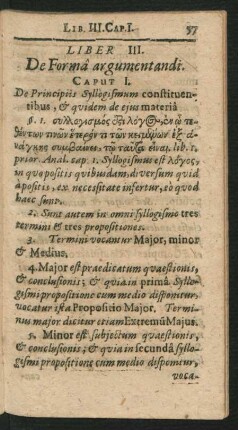 LIB. III. CAP. I. 57
LIBER III.
De Formâ argumentandi.
CAPUT I.
De Principiis Syllogismum constituen-
tibus, & quidem de ejus materiâ
§. 1. συλλογισμὸς δέ ἐστι λόγος, ἐν ᾧ τε-
θέντων τινῶν ἕτερόν τι τῶν κειμένων ἐξ ἀ-
νάγκης συμβαίνει τῷ ταῦτα εἶναι. lib. 1.
prior. Anal. cap. 1. Syllogismus est λόγος,
in quo positis quibusdam, diversum quid
à positis, ex necessitate infertur, eò quod
haec sunt.
2. Sunt autem in omni syllogismo tres
termini & tres propositiones.
3. Termini vocantur Major, minor
& Medius.
4. Major est praedicatum quaestionis,
& conclusionis; & quia in primâ Syllo-
gismi propositione cum medio disponitur,
vocatur ipsa Propositio Major. Termi-
nus major dicitur etiam Extremũ Majus.
5. Minor est subjectum quaestionis,
& conclusionis; & quia in secundâ syllo-
gismi propositione cum medio disponitur,
voca-